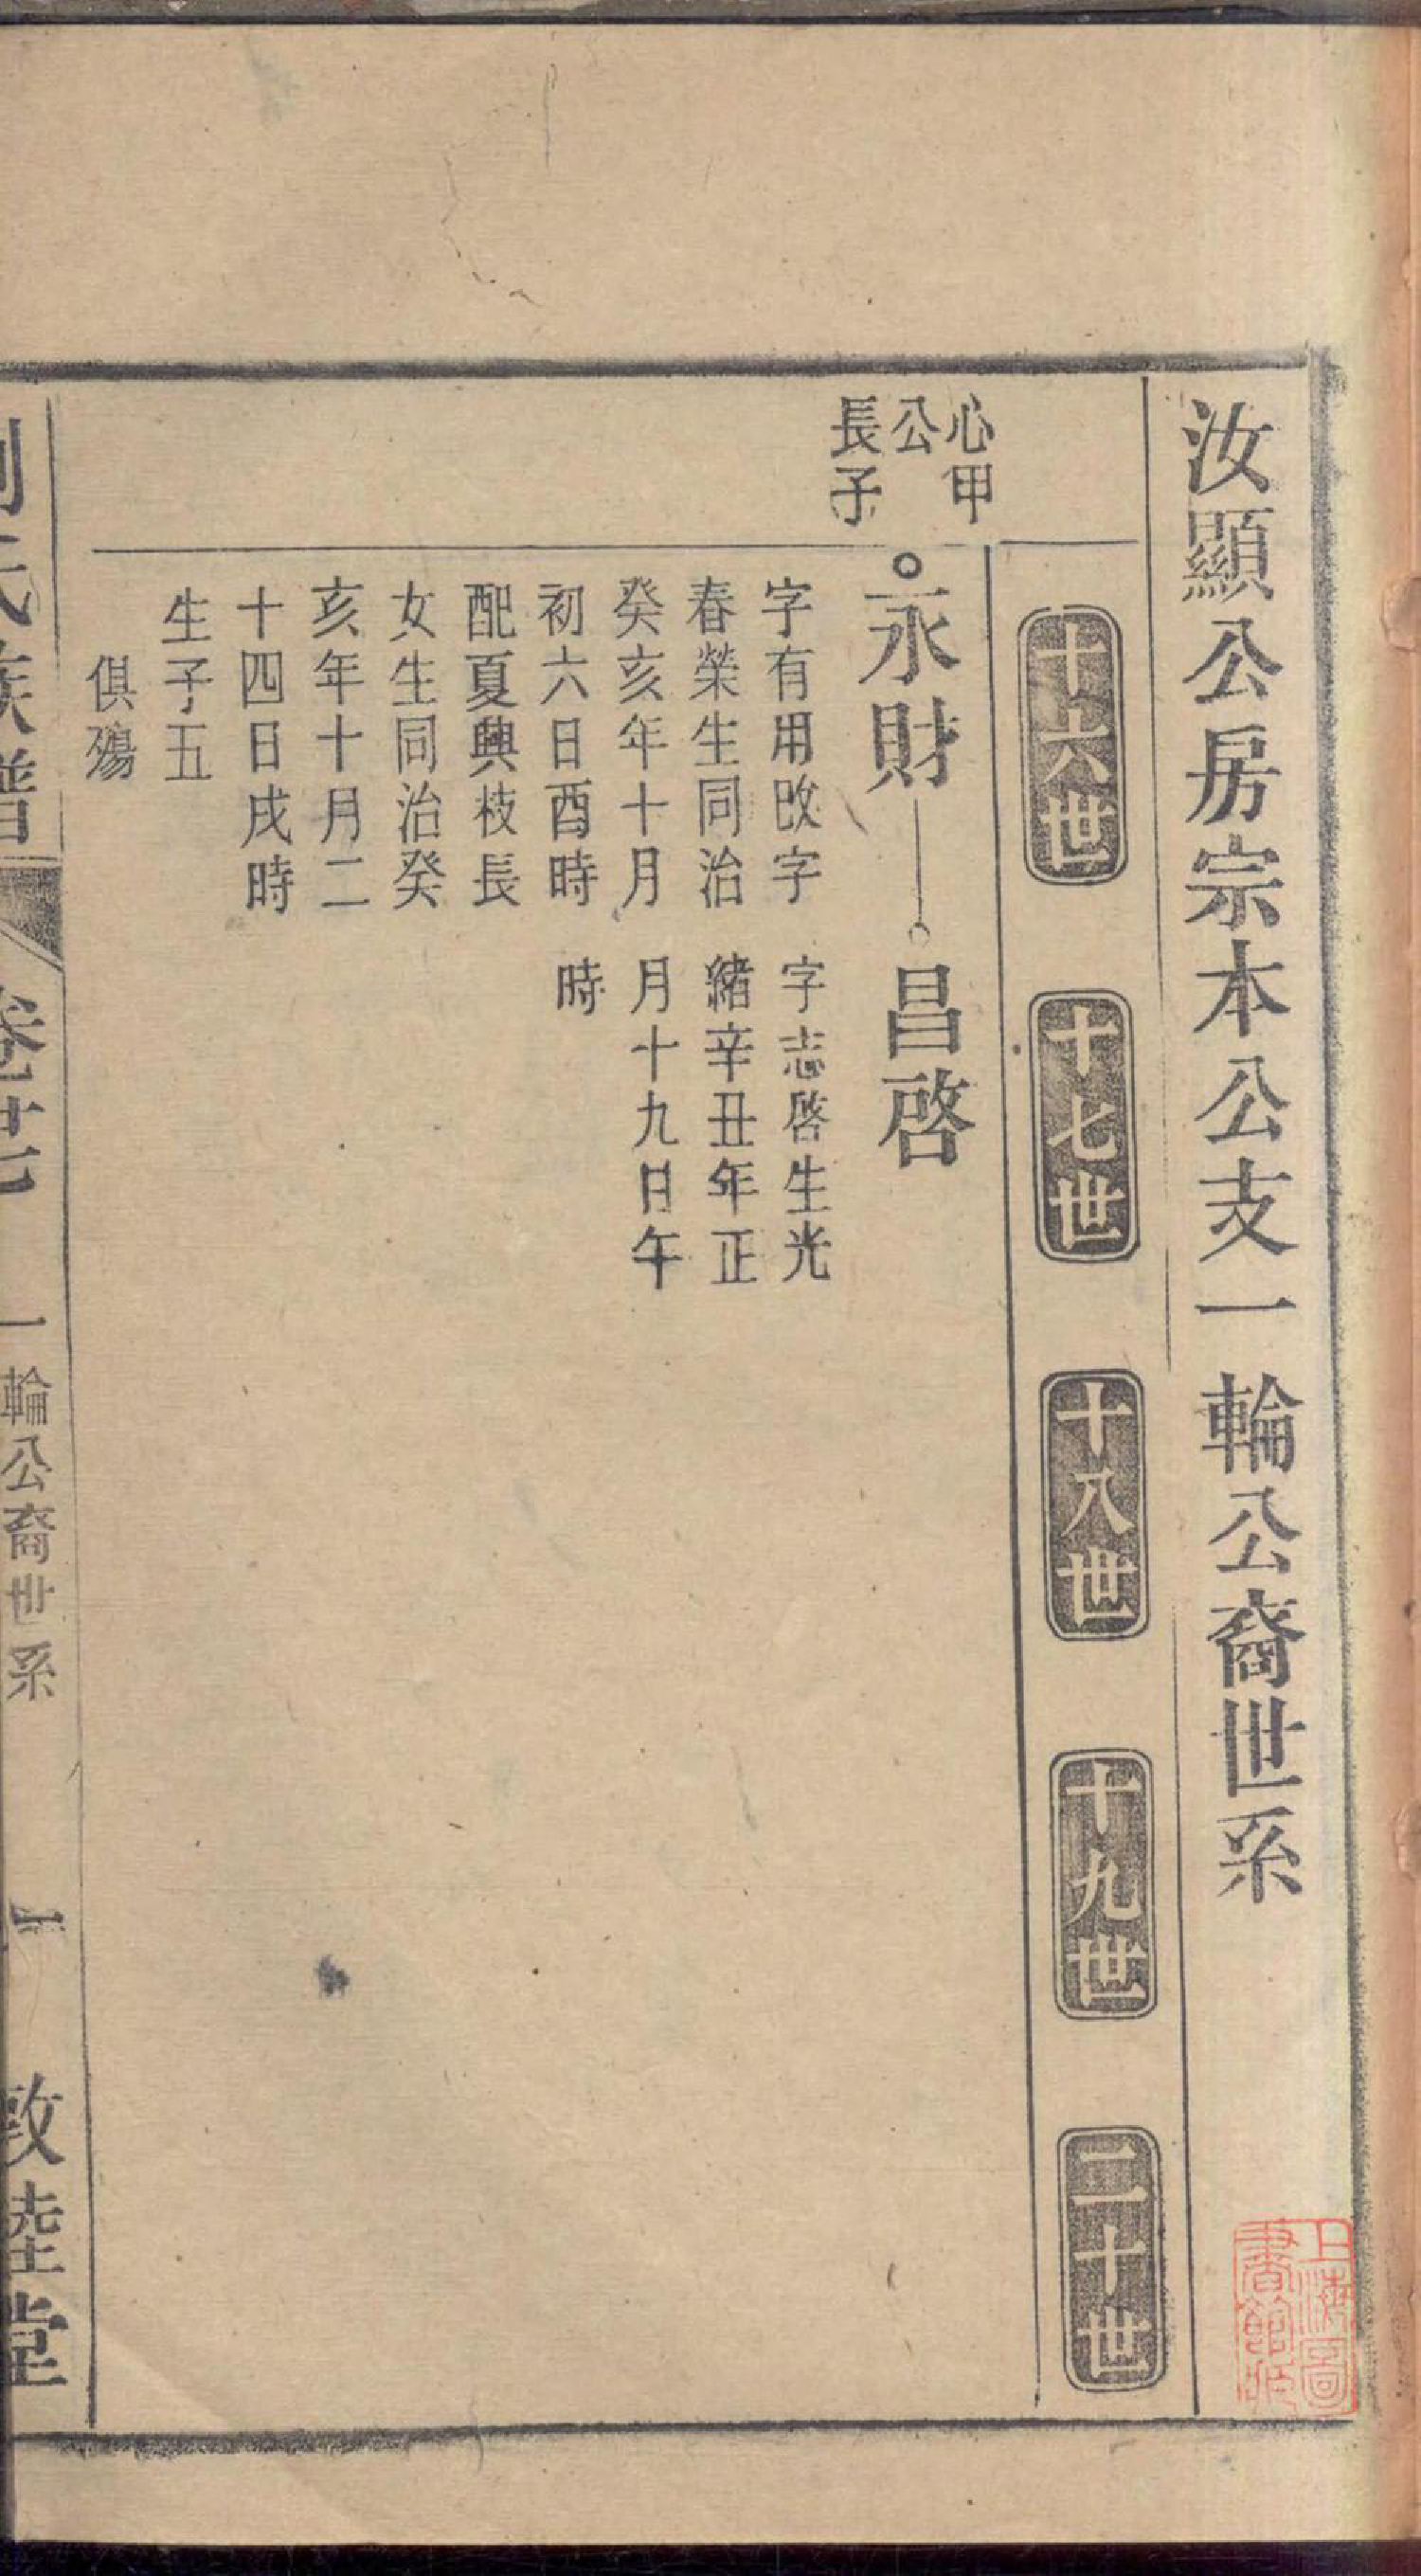 汝顯公房宗本公支一輪公裔世系
十六世
十七世
十八世
十九世
二十世
心甲
公
長子
永財
字有用改字
春榮生同治
癸亥年十月
初六日酉時
配夏興枝長
女生同治癸
亥年十月二
十四日戌時
生子五
俱殤
昌啓
字志啓生光
緒辛丑年正
月十九日午
時
氏族譜
一輪公裔世系
敦睦堂
上海圖
書館藏